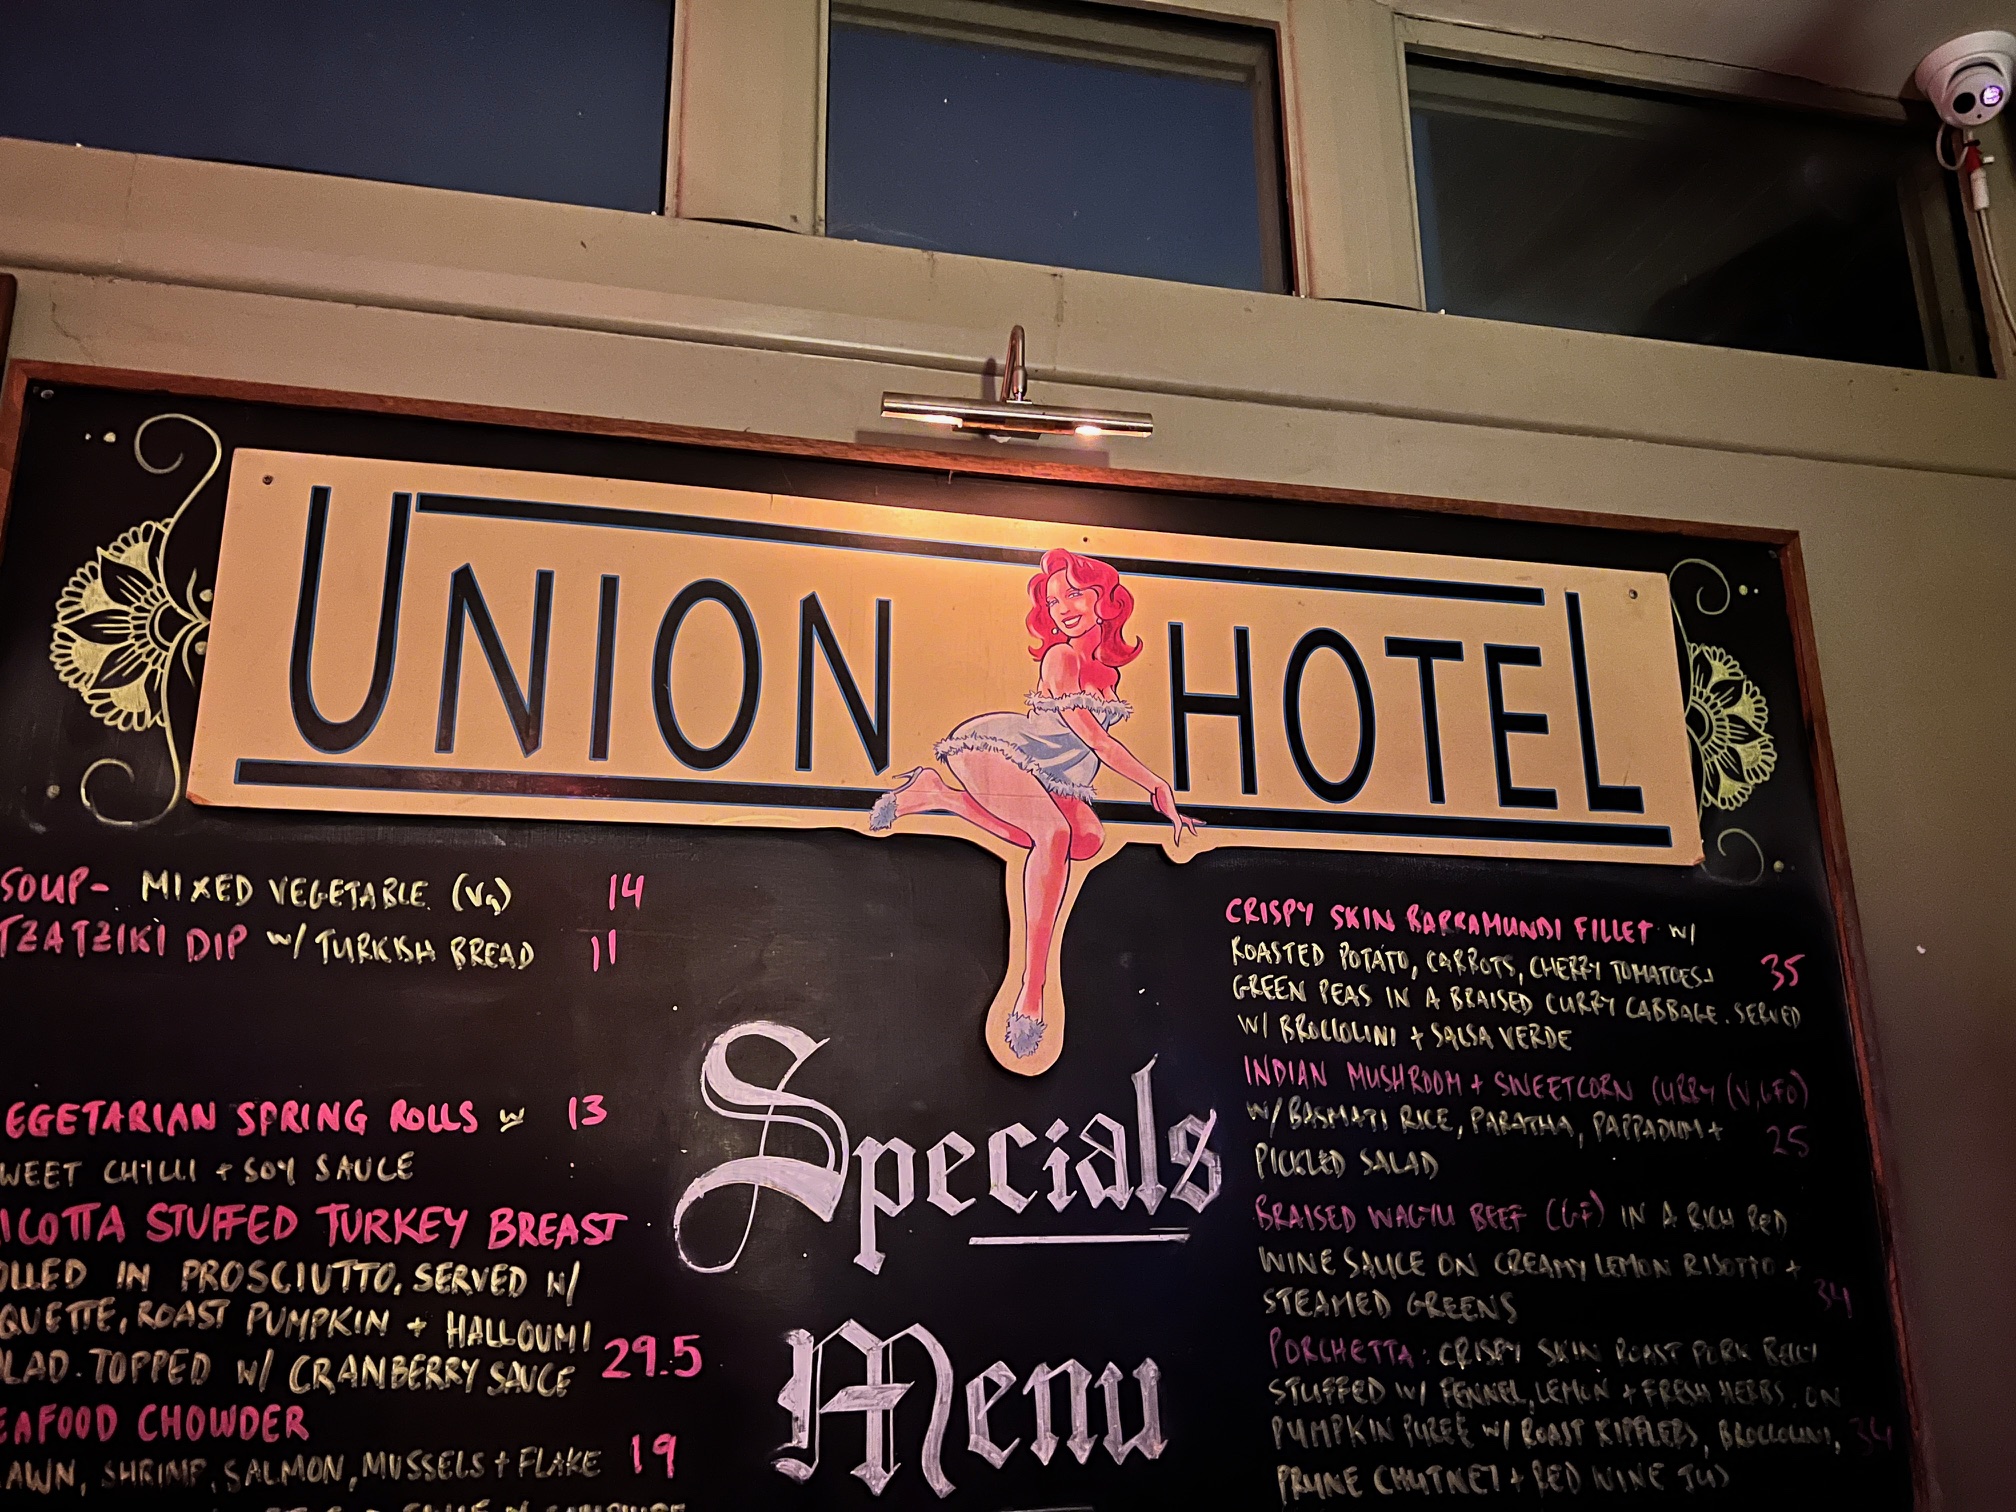 UNION HOTEL
SOUP- MIXED VEGETABLE (VG) 14
TZATZIKI DIP W/ TURKISH BREAD 11
EGETARIAN SPRING ROLLS W 13
WEET CHILLI + SOY SAUCE
ICOTTA STUFFED TURKEY BREAST
OLLED IN PROSCIUTTO. SERVED W/
QUETTE, ROAST PUMPKIN + HALLOUMI
LAD. TOPPED W/ CRANBERRY SAUCE 29.5
EAFOOD CHOWDER
AWN, SHRIMP, SALMON, MUSSELS + FLAKE 19
Specials
Menu
CRISPY SKIN BARRAMUNDI FILLET W/
ROASTED POTATO, CARROTS, CHERRY TOMATOES + 35
GREEN PEAS IN A BRAISED CURRY CABBAGE. SERVED
W/ BROCCOLINI + SALSA VERDE
INDIAN MUSHROOM + SWEETCORN CURRY (V, GFO)
W/ BASMATI RICE, PARATHA, PAPPADUM + 25
PICKLED SALAD
BRAISED WAGYU BEEF (GF) IN A RICH RED
WINE SAUCE ON CREAMY LEMON RISOTTO +
STEAMED GREENS 34
PORCHETTA: CRISPY SKIN ROAST PORK BELLY
STUFFED W/ FENNEL, LEMON + FRESH HERBS. ON
PUMPKIN PUREE W/ ROAST KIPFLERS, BROCCOLINI, 34
PRUNE CHUTNEY + RED WINE JUS